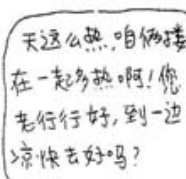 天这么热，咱俩搂
在一起多热啊！您
老行行好，到一边
凉快去好吗？